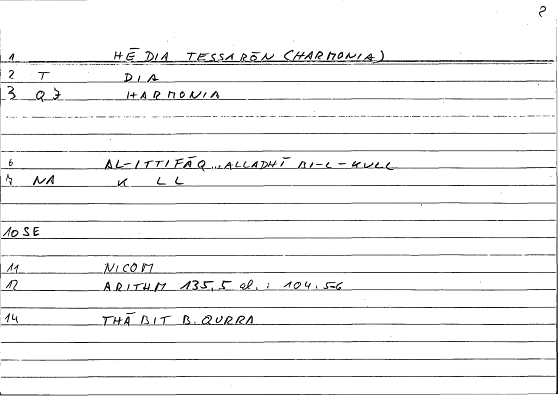 2
1 HĒ DIA TESSARŌN (HARMONIA)
2 T DIA
3 QZ HARMONIA
6 AL-ITTIFĀQ ALLADHĪ BI-L-KULL
7 NA K L L
10 SE
11 NICOM
12 ARITHM 135,5 al.: 104.56
14 THĀBIT B. QURRA